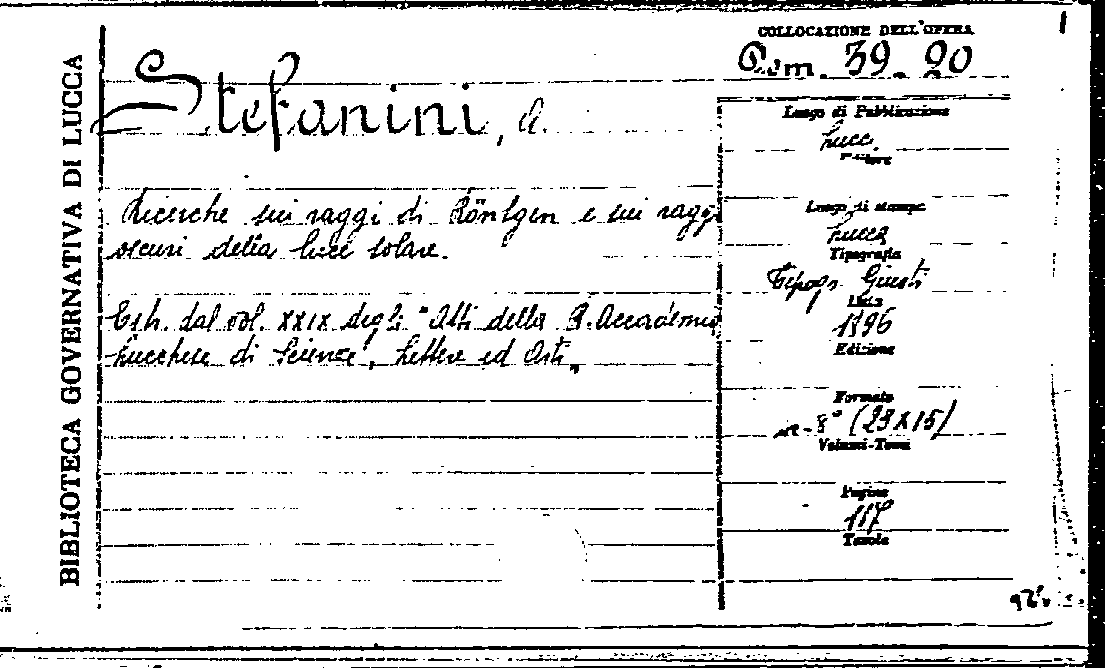 BIBLIOTECA GOVERNATIVA DI LUCCA
COLLOCAZIONE DELL'OPERA
39.20
Stefanini, A.
Ricerche sui raggi di Röntgen e sui raggi
oscuri della luce solare.
Estr. dal vol. XXIX degli "Atti della R. Accademia
Lucchese di Scienze, Lettere ed Arti"
Luogo di Pubblicazione
Lucca
Editore
Luogo di stampa
Lucca
Tipografia
Tipogr. Giusti
Data
1896
Edizione
Formato
in-8° (23X15)
Volumi-Tomi
Pagine
117
Tavole